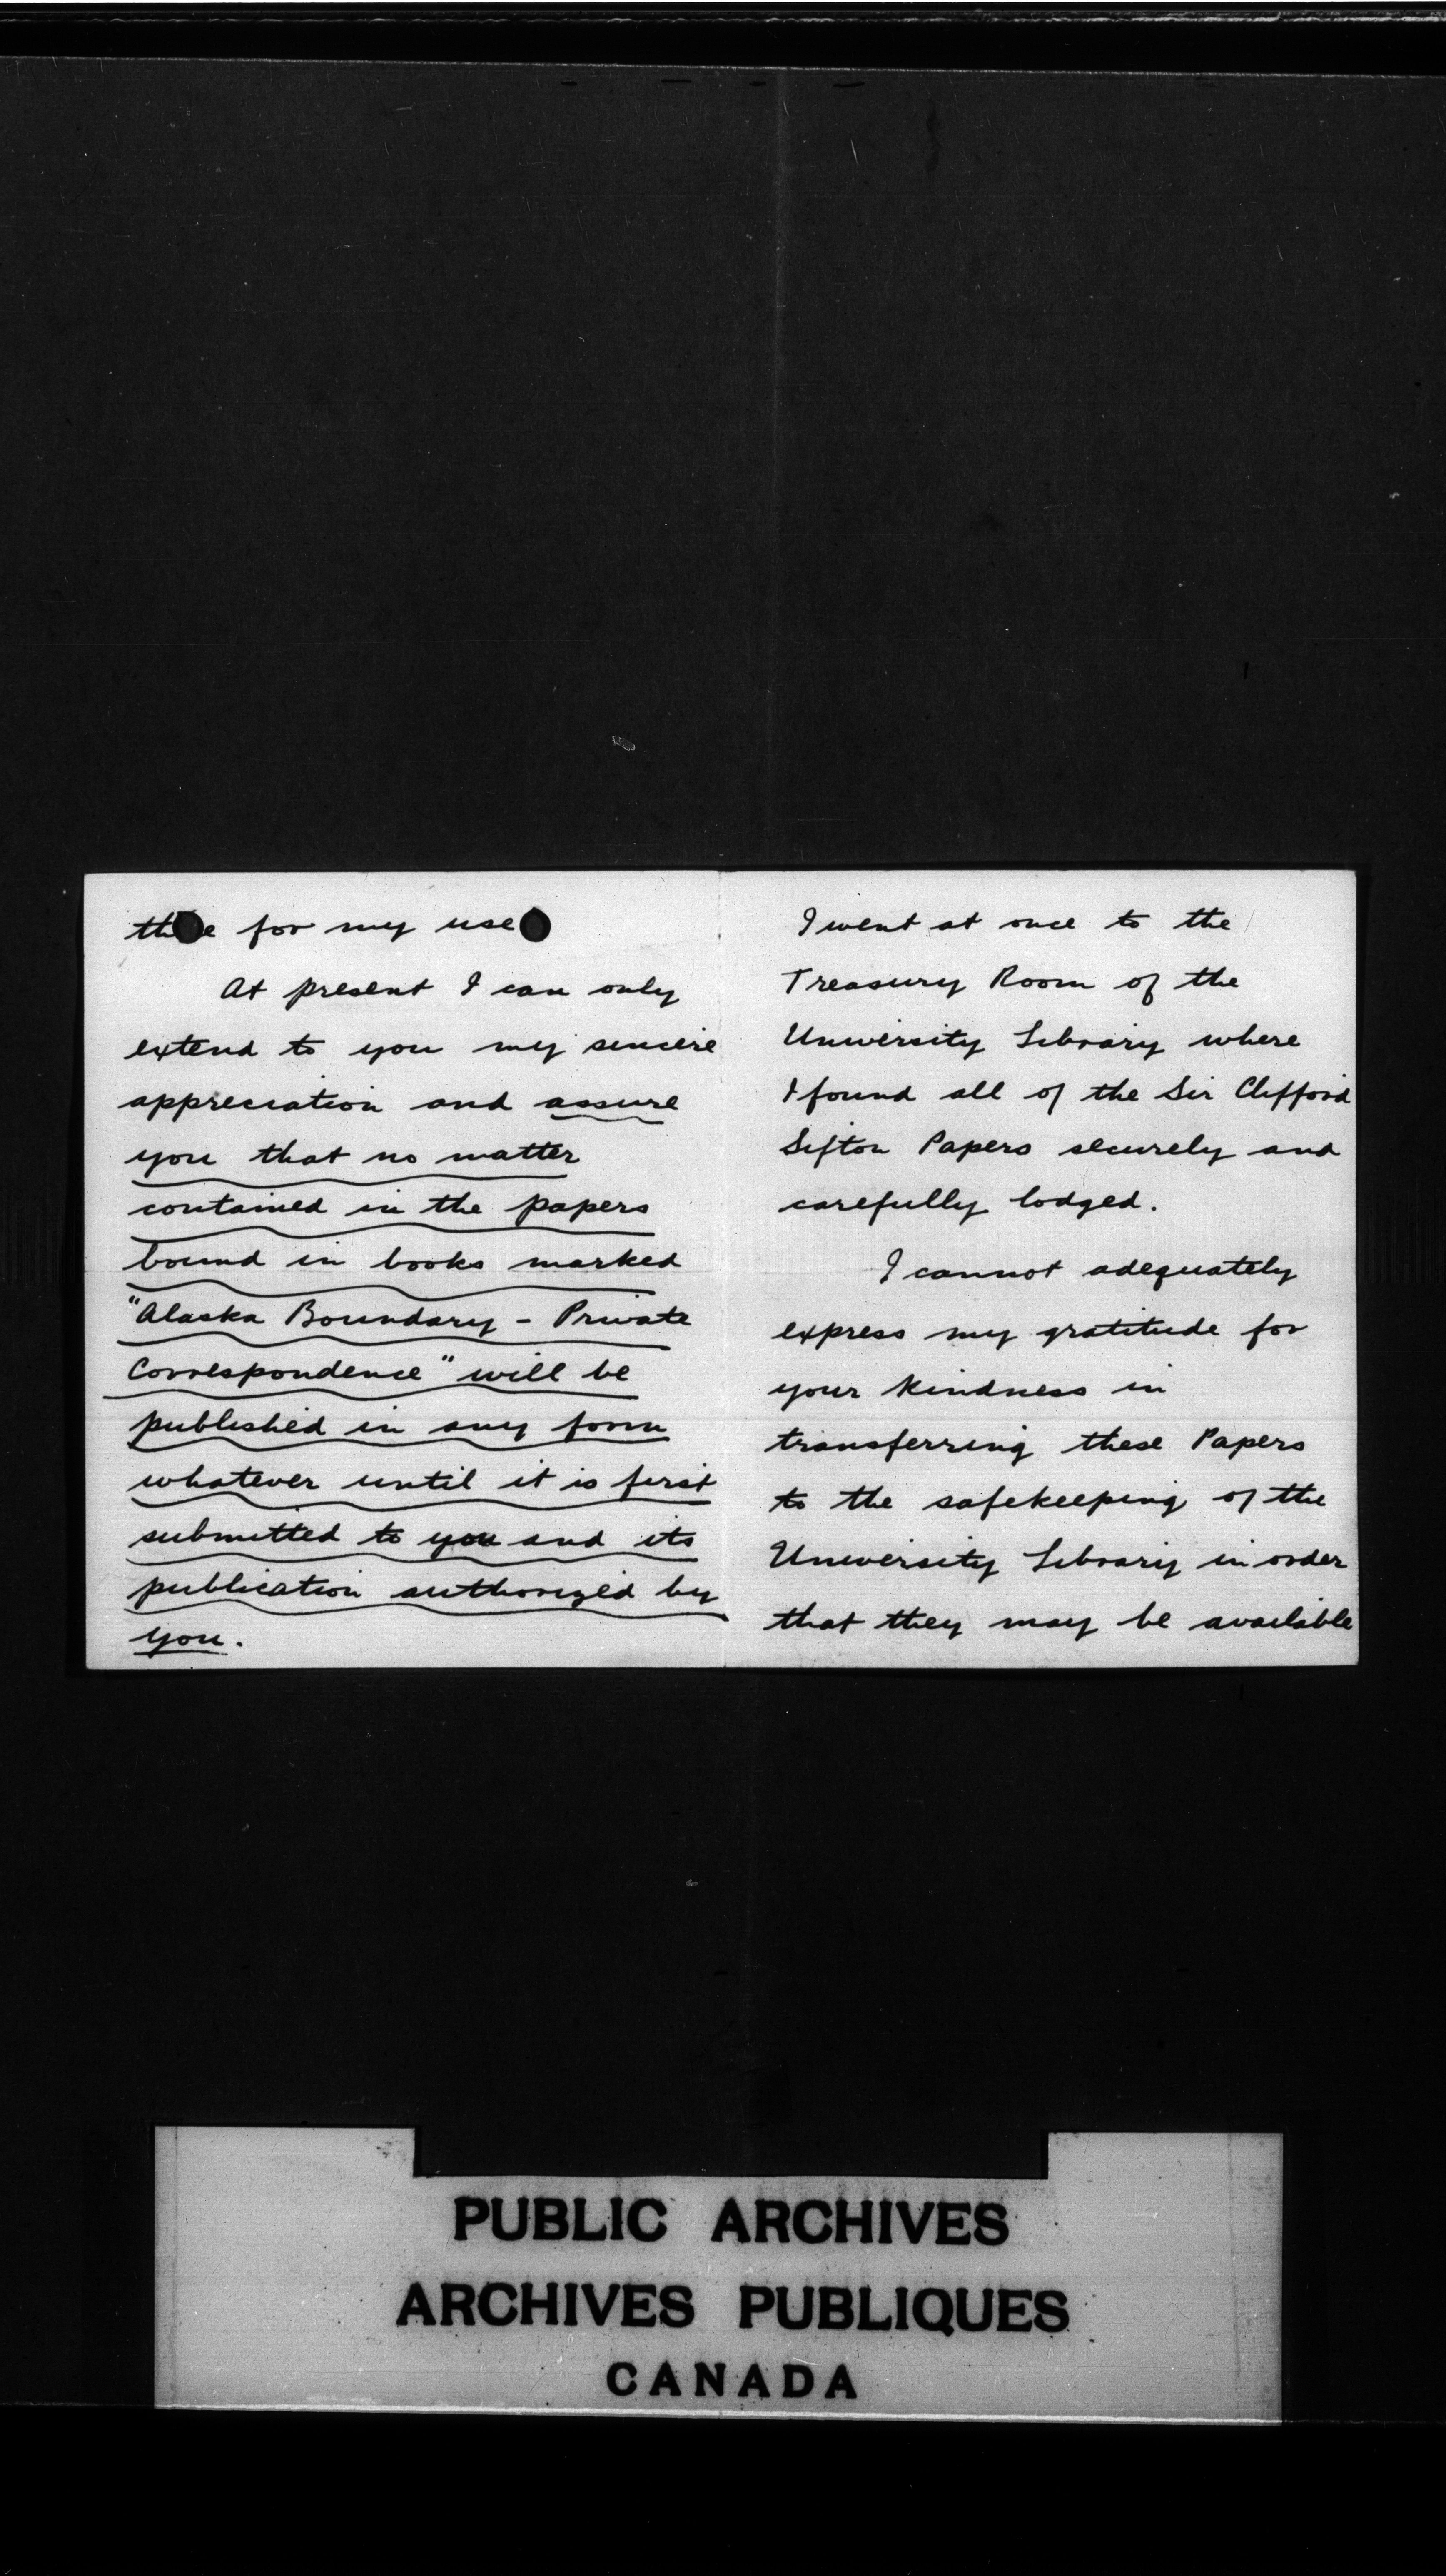 there for my use
At present I can only
extend to you my sincere
appreciation and assure
you that no matter
contained in the papers
bound in books marked
"Alaska Boundary - Private
Correspondence" will be
published in any form
whatever until it is first
submitted to you and its
publication authorized by
you.
I went at once to the
Treasury Room of the
University Library where
I found all of the Sir Clifford
Sifton Papers securely and
carefully lodged.
I cannot adequately
express my gratitude for
your kindness in
transferring these Papers
to the safekeeping of the
University Library in order
that they may be available
PUBLIC ARCHIVES
ARCHIVES PUBLIQUES
CANADA